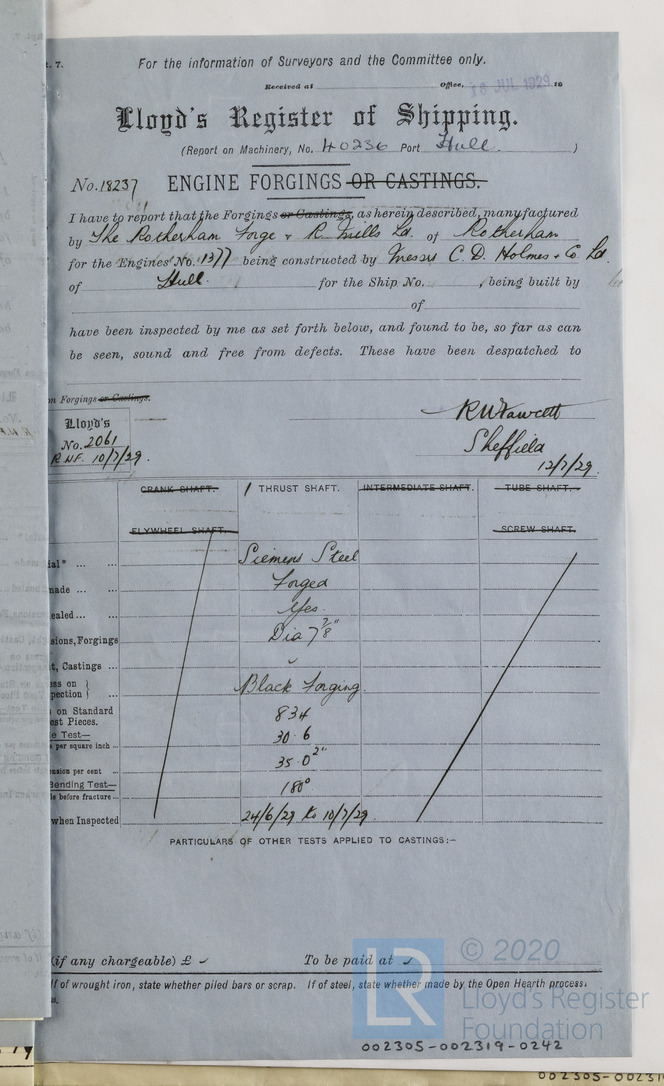 t. 7.
For the information of Surveyors and the Committee only.
Received at Office, 16 JUL 1929 19
Lloyd's Register of Shipping.
(Report on Machinery, No. 40236 Port Hull. )
No. 18237 ENGINE FORGINGS OR CASTINGS.
I have to report that the Forgings or Castings, as herein described, manufactured
by The Rotherham Forge & R. Mills Ld. of Rotherham
for the Engines No. 1377 being constructed by Messrs C. D. Holmes & Co. Ld.
of Hull. for the Ship No. , being built by
of
have been inspected by me as set forth below, and found to be, so far as can
be seen, sound and free from defects. These have been despatched to
on Forgings or Castings.
Lloyd's
No. 2061
R.W.F. 10/7/29.
R W Fawcett
Sheffield
12/7/29.
CRANK SHAFT. 1 THRUST SHAFT. INTERMEDIATE SHAFT. TUBE SHAFT.
FLYWHEEL SHAFT. SCREW SHAFT.
ial* ... ... Siemens Steel
made ... ... Forged
ealed ... ... Yes.
sions, Forgings Dia 7 7/8"
t, Castings ...
ss on }
pection } ... Black Forging.
on Standard
est Pieces. 834
e Test—
per square inch ... 30.6
nsion per cent ... 35.0 2"
Bending Test—
le before fracture ... 180°
when Inspected 24/6/29 to 10/7/29.
PARTICULARS OF OTHER TESTS APPLIED TO CASTINGS:—
(if any chargeable) £ To be paid at
If of wrought iron, state whether piled bars or scrap. If of steel, state whether made by the Open Hearth process.
© 2020
LR
Lloyd's Register
Foundation
002305-002319-0242
002305-00231